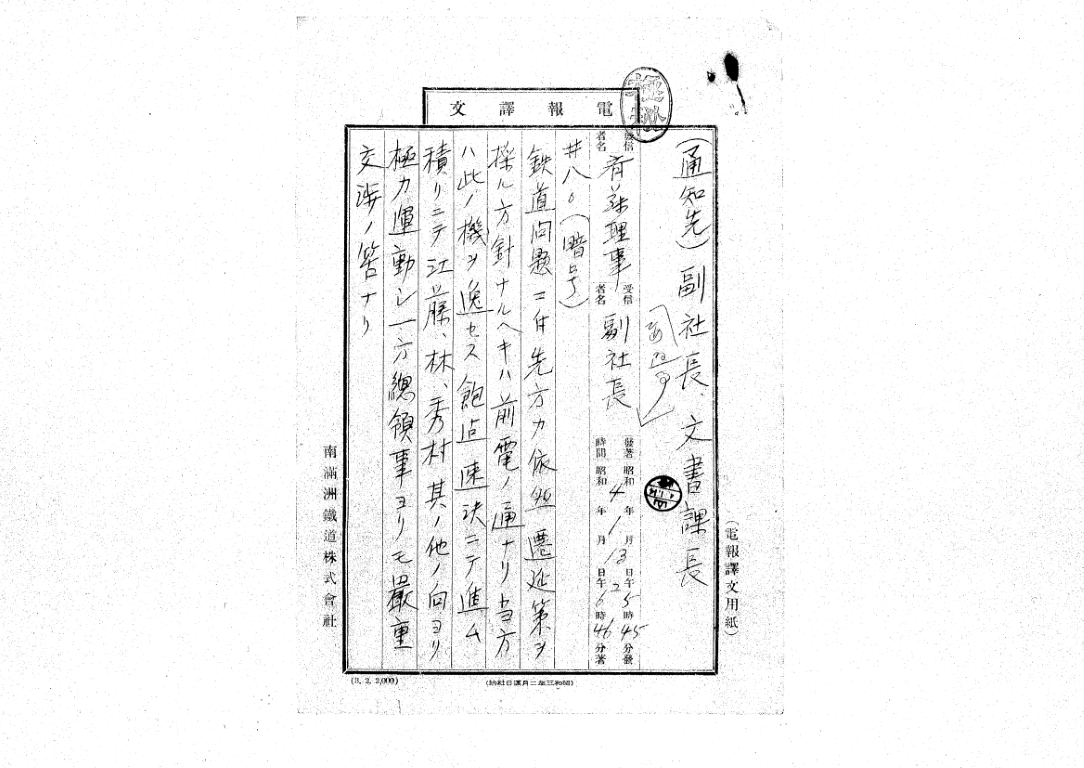 電報譯文
(通知先)副社長、文書課長
發信者名
斉藤理事
受信者名
副社長
發著時間
昭和4年1月13日午 5時45分發
昭和 年 月 日午 6時46分著
廿八。(暗号)
鉄道問題ニ付先方カ依然遷延策ヲ
採ル方針ナルヘキハ前電ノ通ナリ当方
ハ此ノ機ヲ逸セス飽迄速決ニテ進ム
積リニテ江藤、林、秀村其ノ他ノ向ヨリ
極力運動シ一方總領事ヨリモ嚴重
交渉ノ筈ナリ
(電報譯文用紙)
南滿洲鐵道株式會社
(3. 2. 2,000)